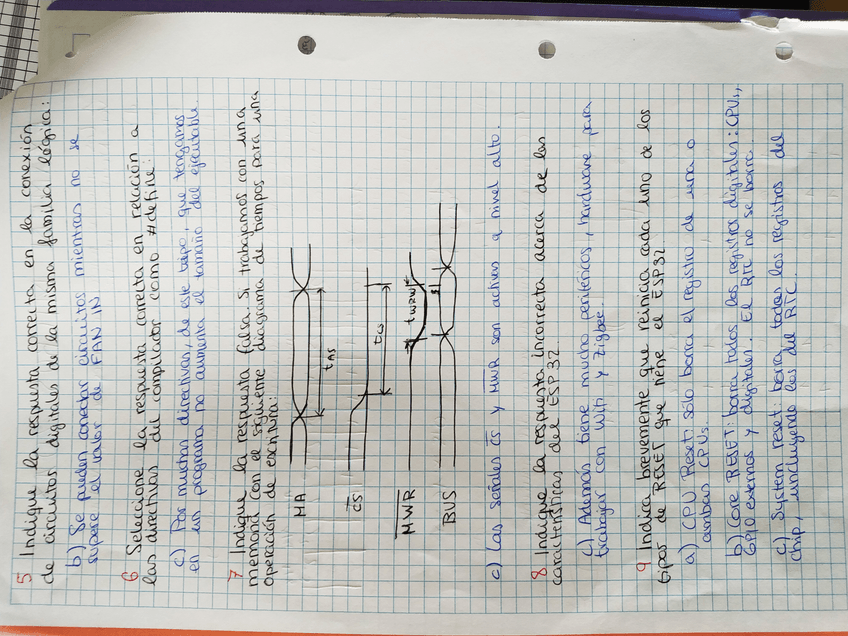 5 Indique la respuesta correcta en la conexión
de circuitos digitales de la misma familia lógica:
b) Se pueden conectar circuitos mientras no se
supere el valor de FAN IN
6 Seleccione la respuesta correcta en relación a
las directivas del compilador como #define:
c) Por muchas directivas, de este tipo, que tengamos
en un programa no aumenta el tamaño del ejecutable
7 Indique la respuesta falsa. Si trabajamos con una
memoria con el siguiente diagrama de tiempos para una
operación de escritura:
MA
tAS
CS
tCS
MWR
tWRW
BUS
c) Las señales CS y MWR son activas a nivel alto.
8 Indique la respuesta incorrecta acerca de las
características del ESP32.
c) Además tiene mucho periféricos, hardware para
trabajar con Wifi y Zigbee.
9 Indica brevemente que reinicia cada uno de los
tipos de RESET que tiene el ESP32
a) CPU Reset: sólo borra el registro de una o
ambas CPUs.
b) Core RESET: borra todos los registros digitales: CPUs,
GPIO externos y digitales. El RTC no se borra.
c) System reset: borra todos los registros del
chip, incluyendo los del RTC.